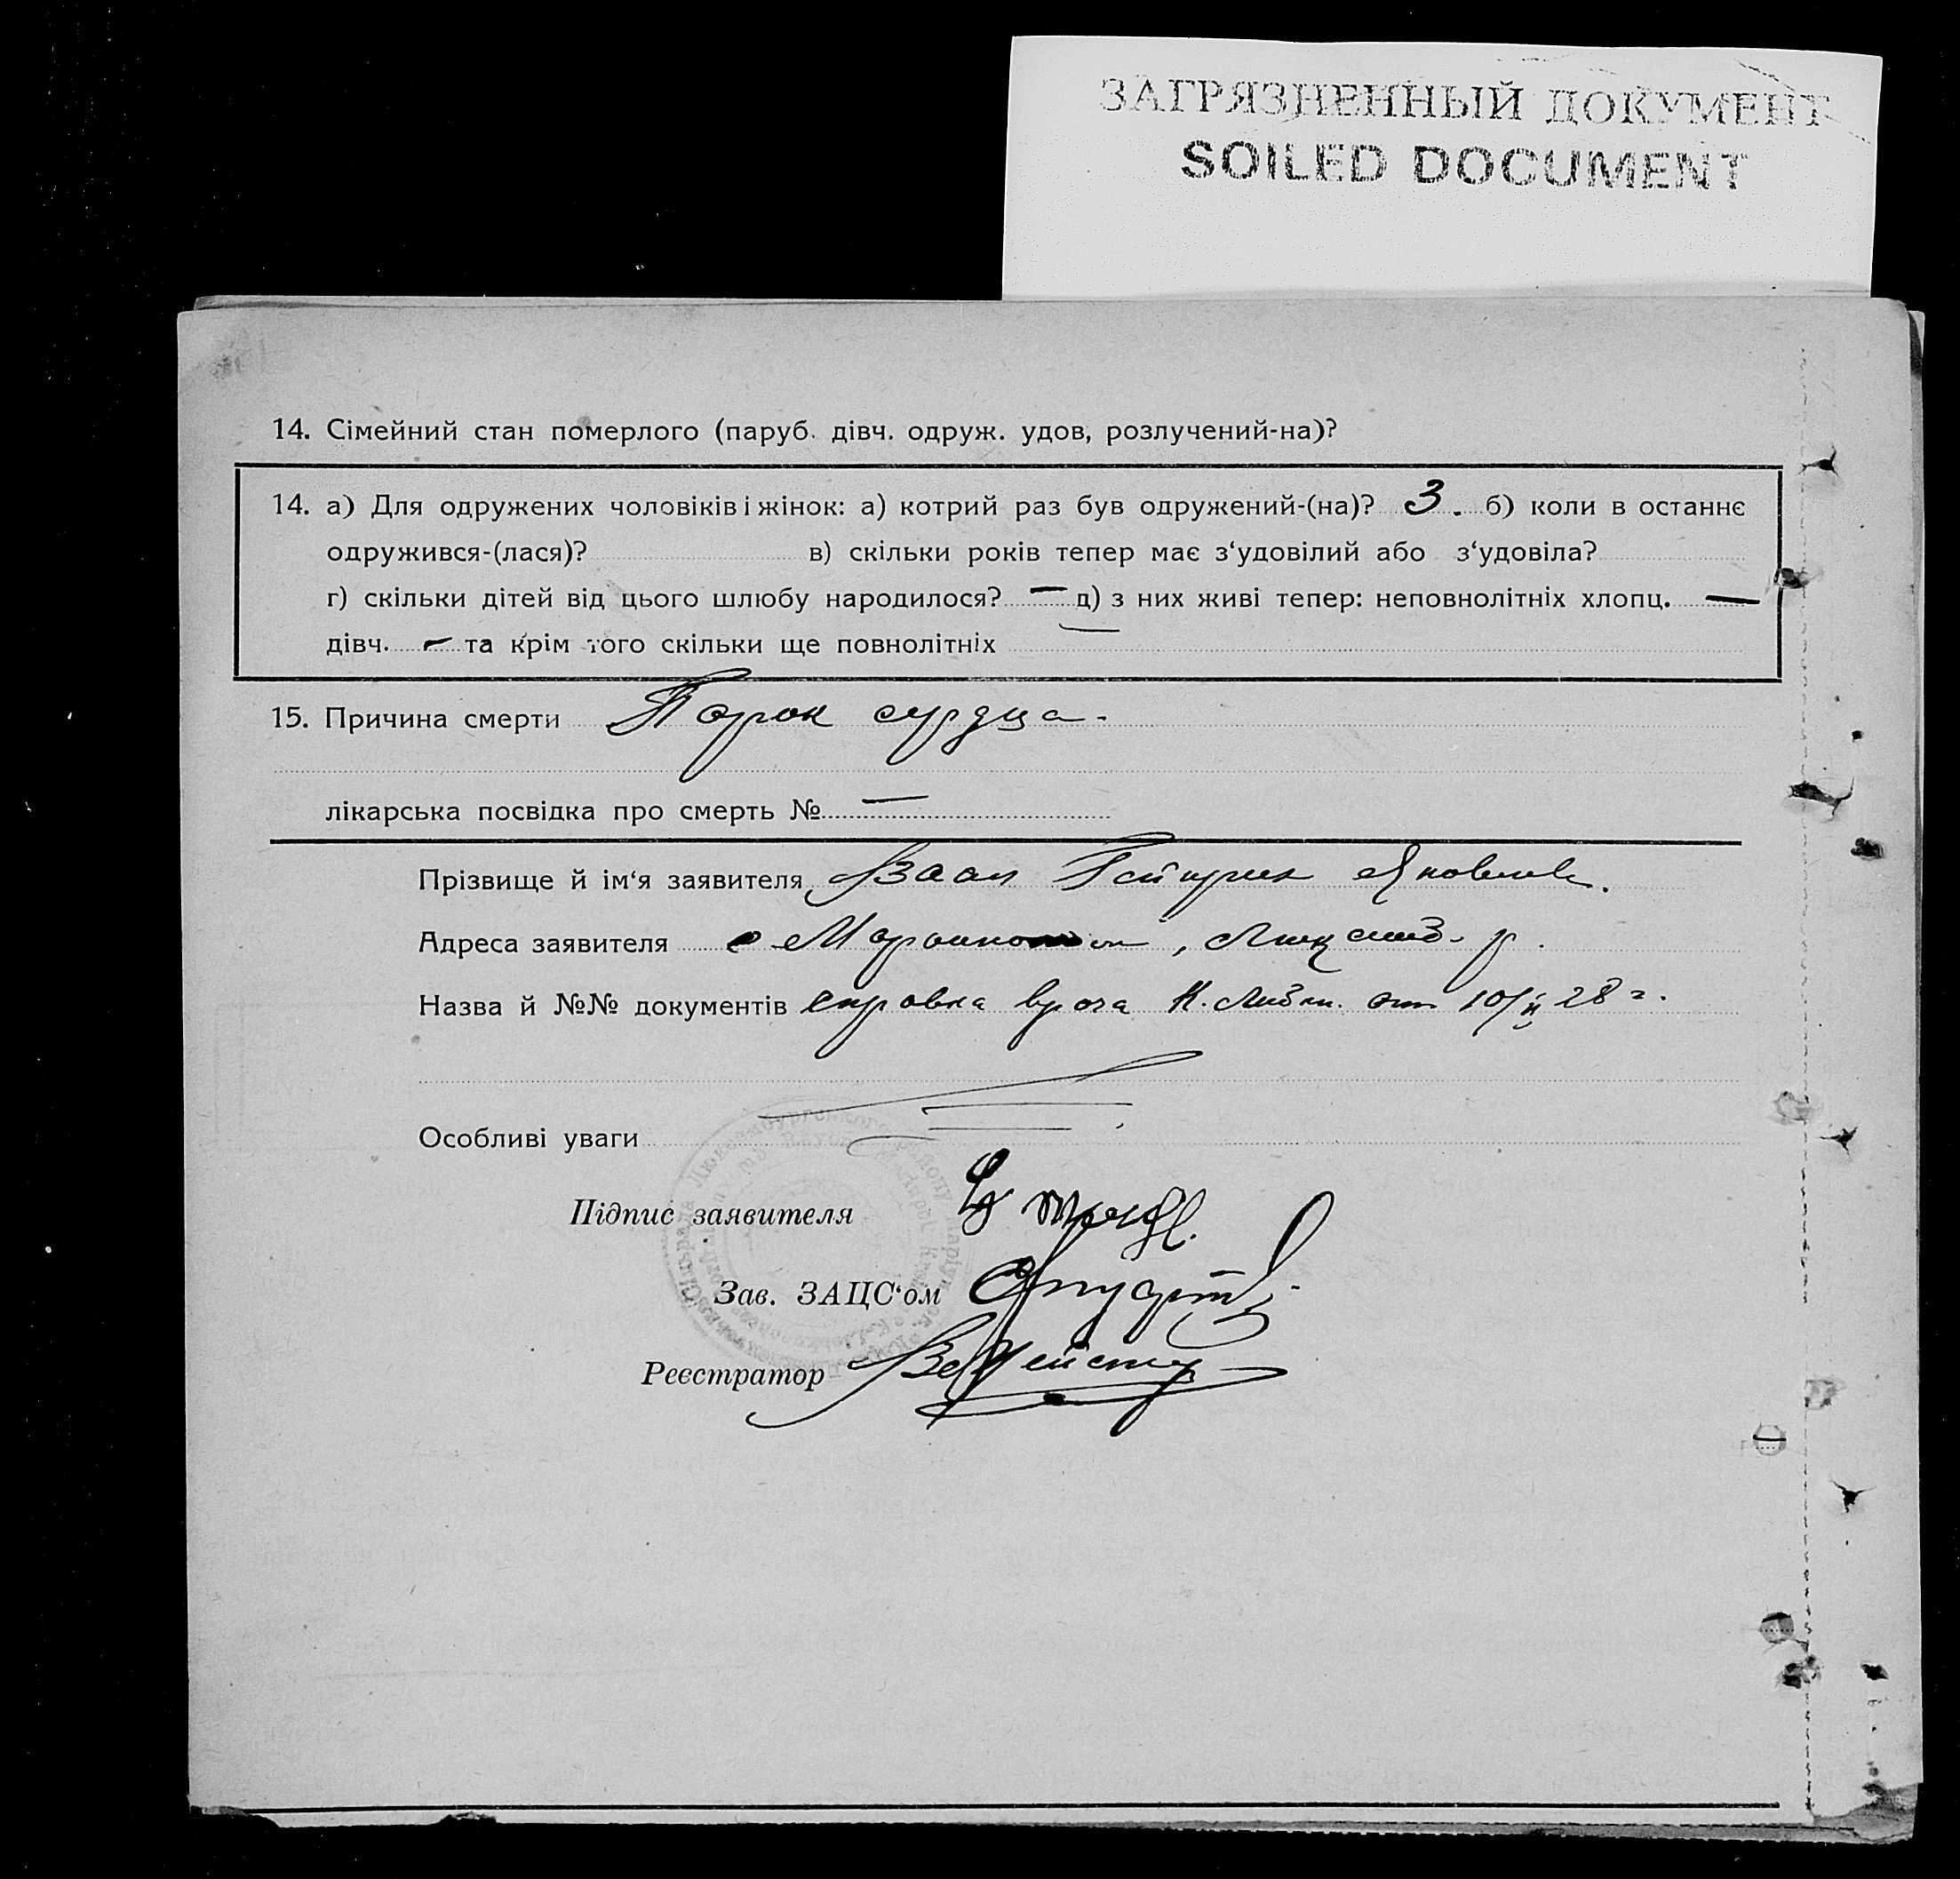 ЗАГРЯЗНЕННЫЙ ДОКУМЕНТ
SOILED DOCUMENT
14. Сімейний стан померлого (паруб. дівч. одруж. удов, розлучений-на)?
14. а) Для одружених чоловіків і жінок: а) котрий раз був одружений-(на)? 3. б) коли в останнє
одружився-(лася)? в) скільки років тепер має з‘удовілий або з‘удовіла?
г) скільки дітей від цього шлюбу народилося? — д) з них живі тепер: неповнолітніх хлопц. —
дівч. — та крім того скільки ще повнолітніх —
15. Причина смерти Порок сердца.
лікарська посвідка про смерть № —
Прізвище й ім‘я заявителя Ваал Гейнрих Яковлев.
Адреса заявителя с
Назва й №№ документів Справка врача от 10/II 28 г.
Особливі уваги
Підпис заявителя
Зав. ЗАЦС‘ом
Реєстратор